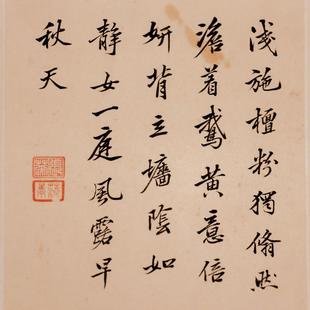 淺施檀粉獨翛然
澹着鵝黃意倍
妍背立牆陰如
靜女一庭風露早
秋天